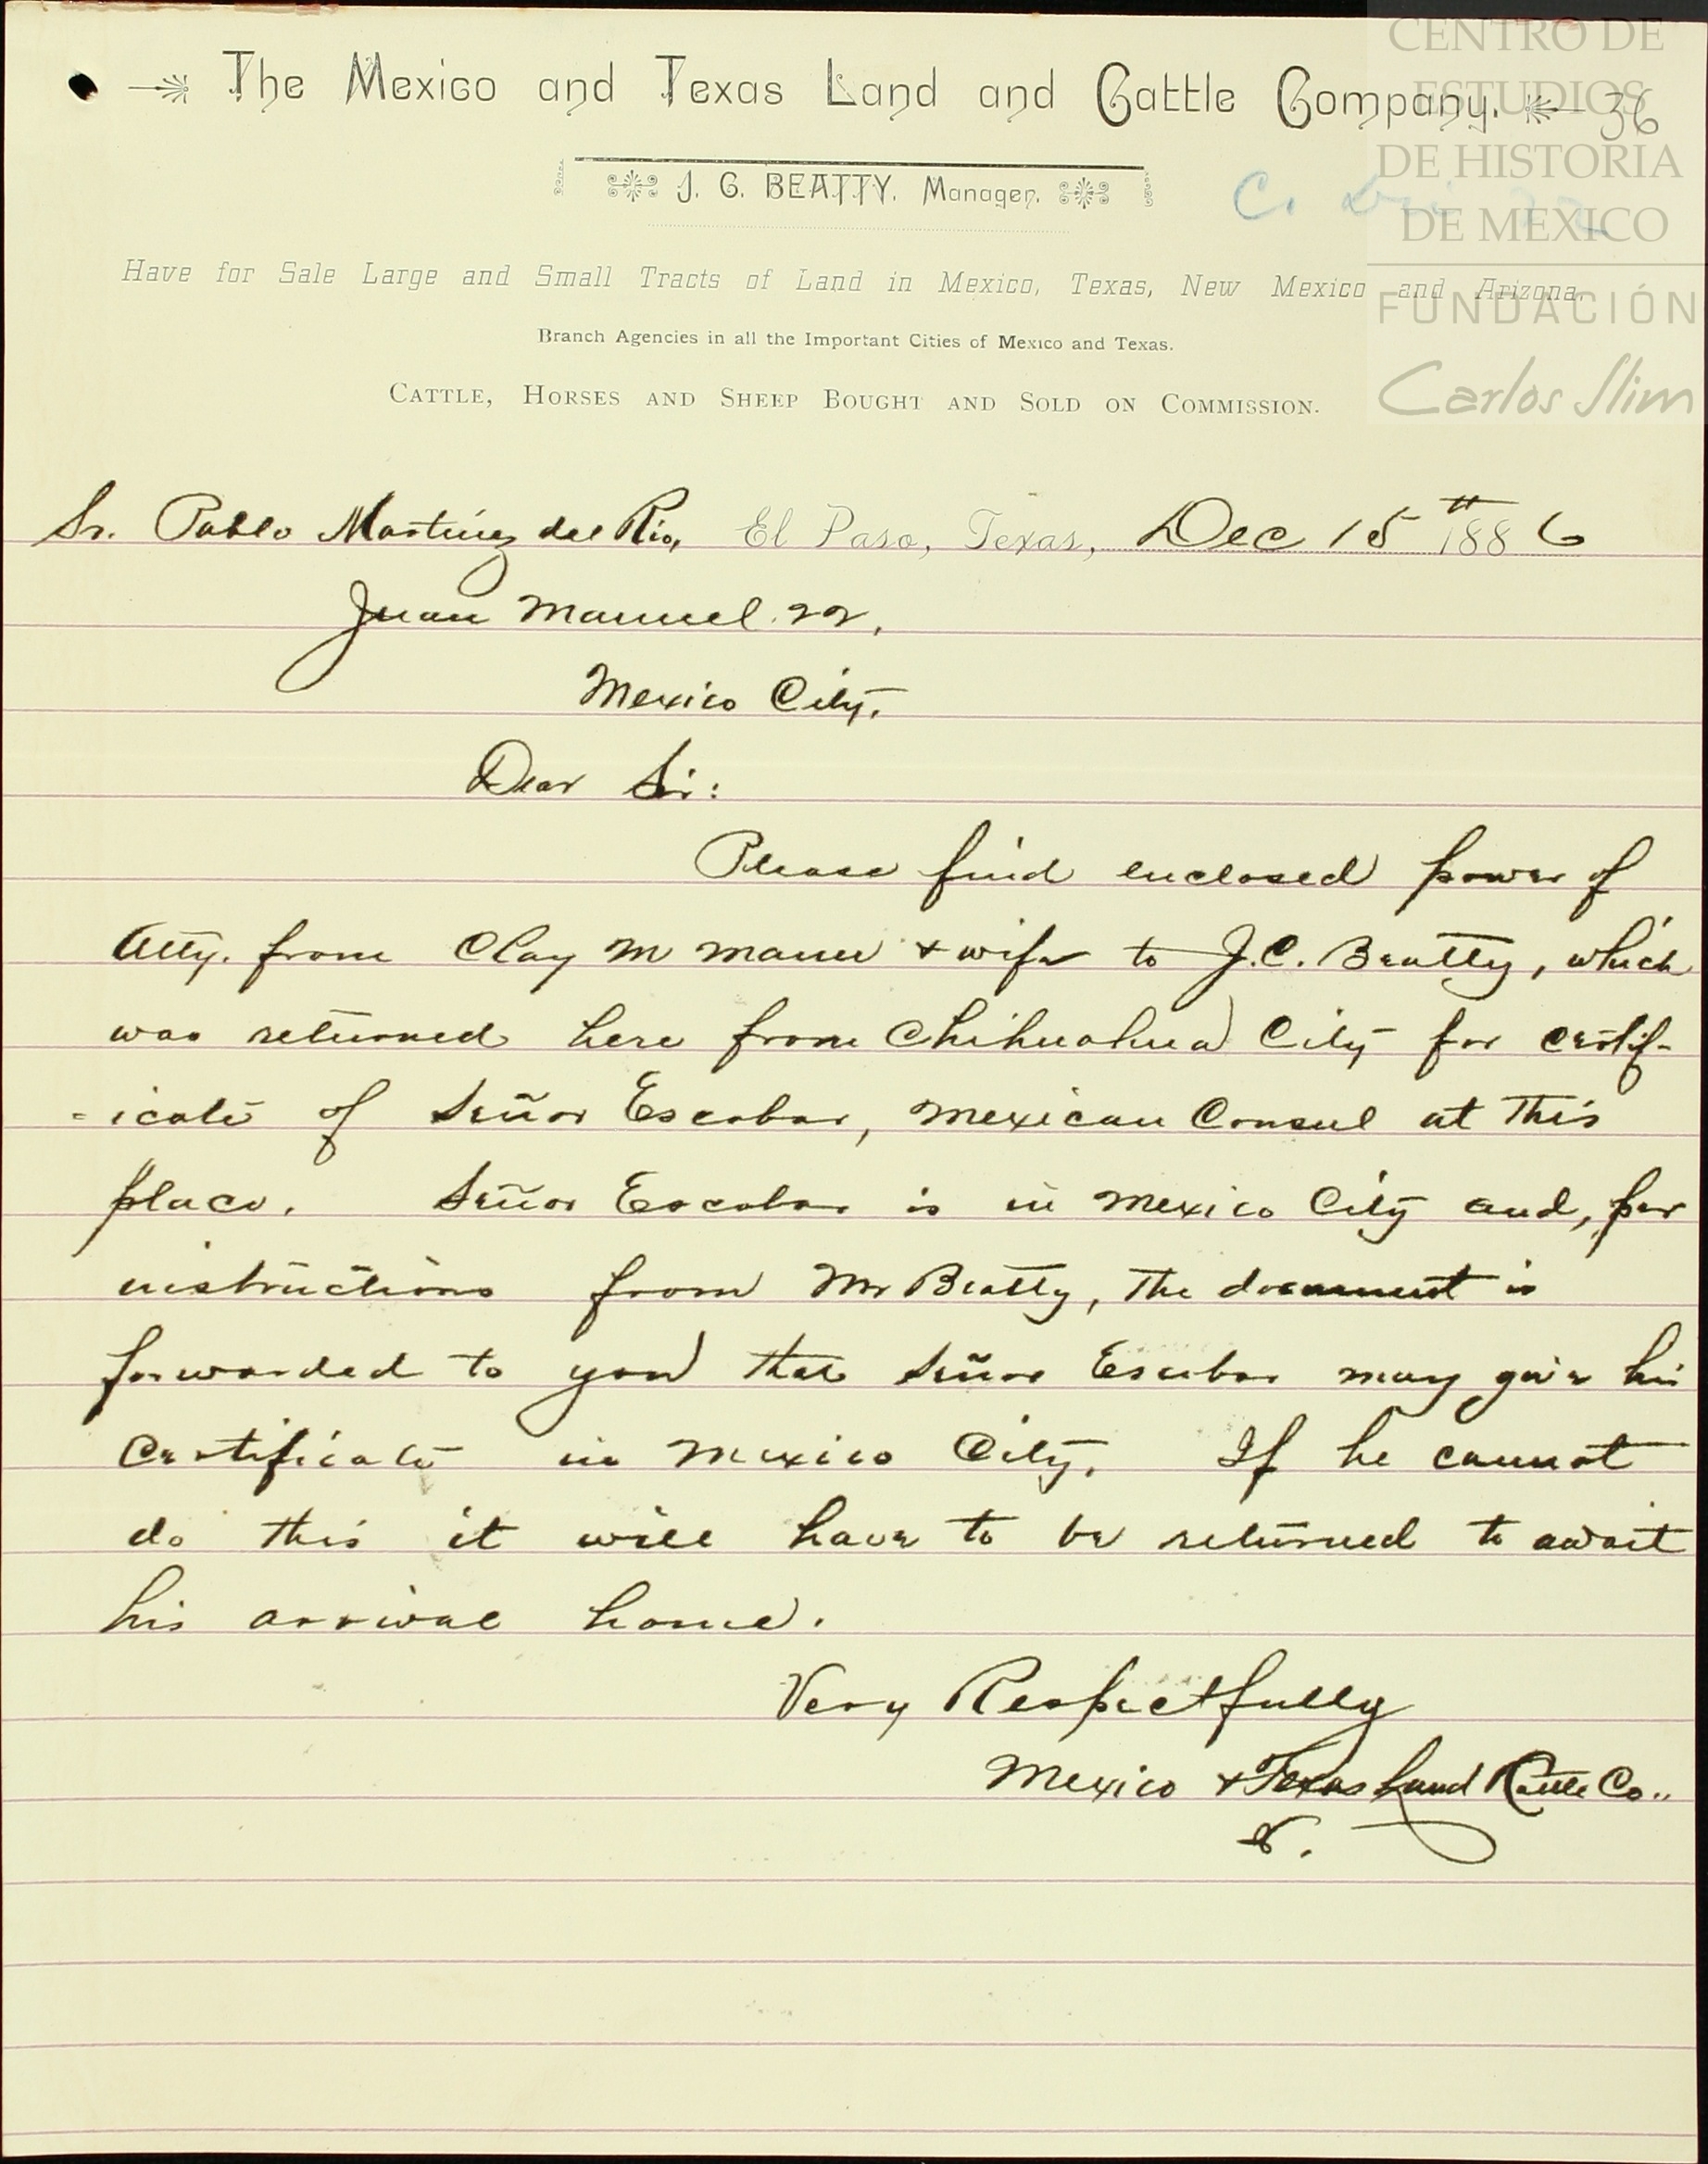 The Mexico and Texas Land and Cattle Company. 36
J. C. BEATTY, Manager.
Have for Sale Large and Small Tracts of Land in Mexico, Texas, New Mexico and Arizona.
Branch Agencies in all the Important Cities of Mexico and Texas.
CATTLE, HORSES AND SHEEP BOUGHT AND SOLD ON COMMISSION.
CENTRO DE
ESTUDIOS
DE HISTORIA
DE MEXICO
FUNDACIÓN
Carlos Slim
Sr. Pablo Martínez del Rio, El Paso, Texas, Dec 15th 1886
Juan Manuel 22,
Mexico City.
Dear Sir:
Please find enclosed power of
Atty. from Clay M Mann + wife to J.C. Beatty, which
was returned here from Chihuahua City for certif-
-icate of Señor Escobar, Mexican Consul at this
place. Señor Escobar is in Mexico City and, per
instructions from Mr Beatty, the document is
forwarded to you that Señor Escobar may give his
Certificate in Mexico City. If he cannot
do this it will have to be returned to await
his arrival home.
Very Respectfully
Mexico + Texas Land & Cattle Co..